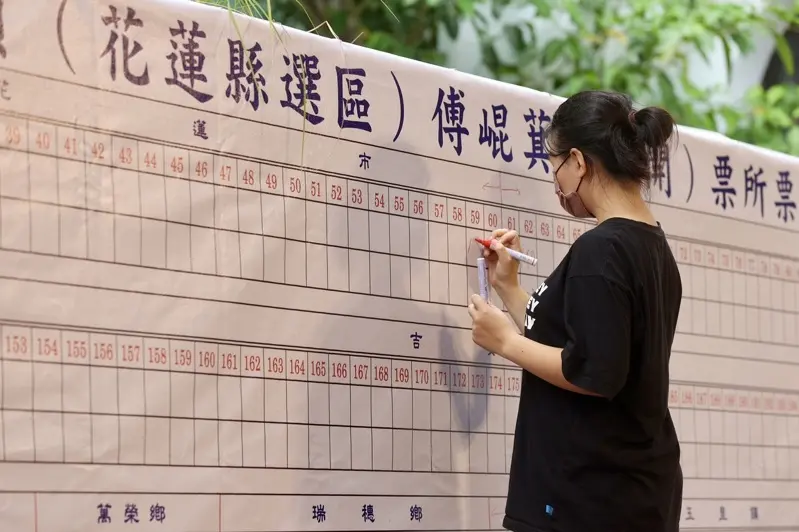 （花蓮縣選區）傅崐萁 開）票所票
蓮 市
39 40 41 42 43 44 45 46 47 48 49 50 51 52 53 54 55 56 57 58 59 60 61 62 63 64
吉
153 154 155 156 157 158 159 160 161 162 163 164 165 166 167 168 169 170 171 172 173 174 175
萬榮鄉 瑞穗鄉 玉里鎮